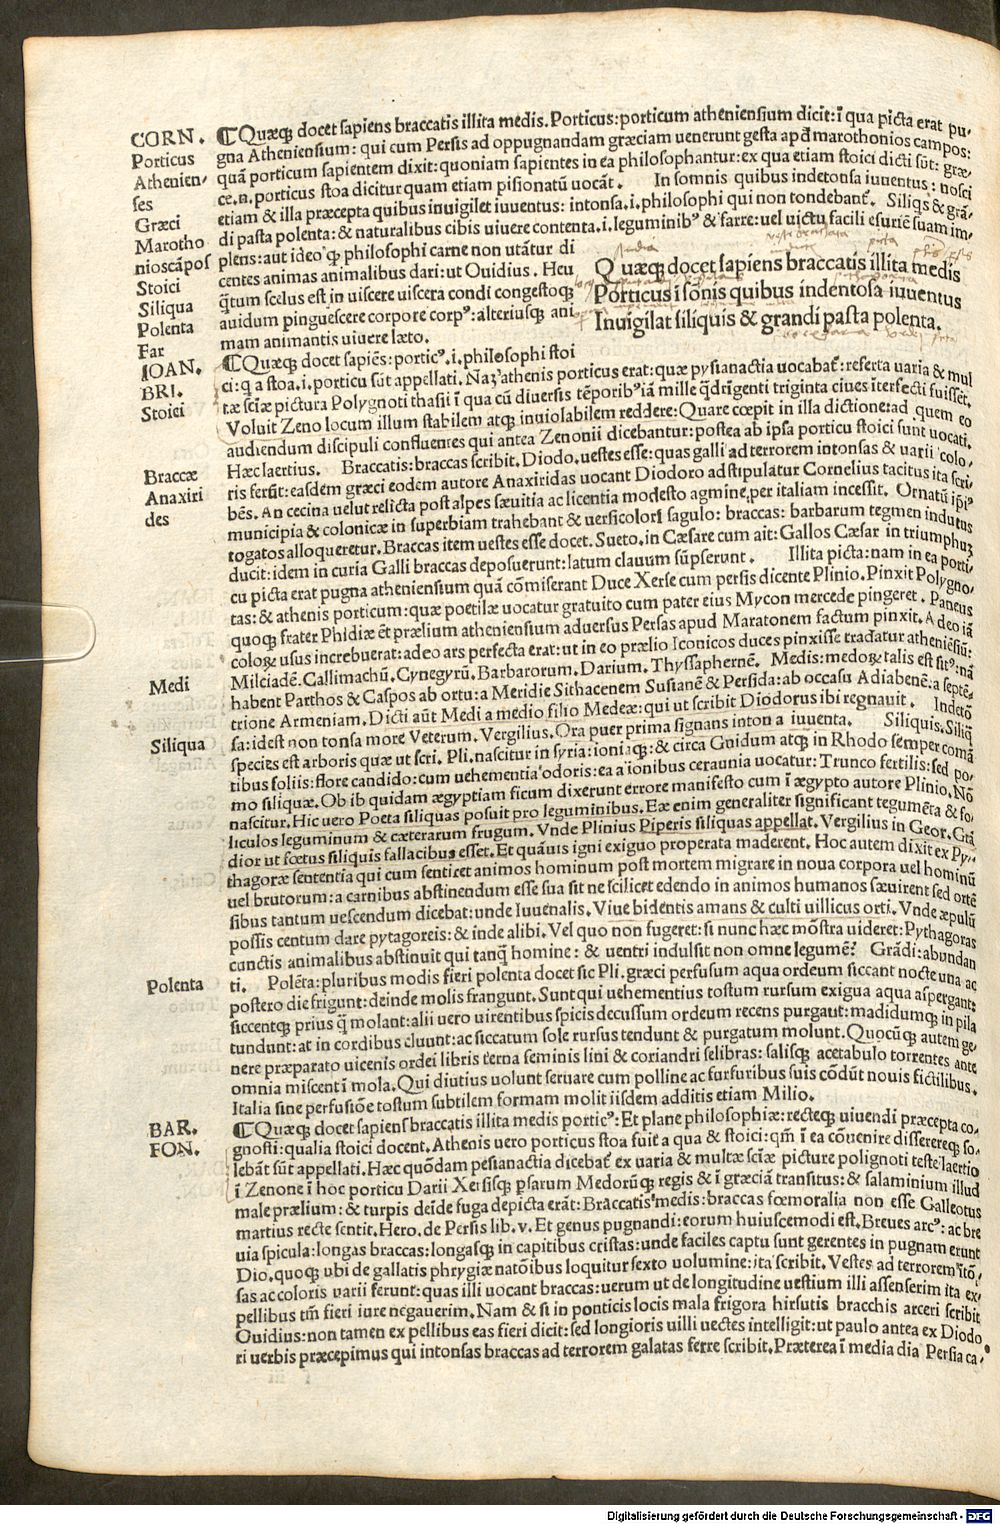 CORN.
Porticus
Athenien/
ses
Græci
Marotho
nioscãpos
Stoici
Siliqua
Polenta
Far
IOAN.
BRI.
Stoici
Braccæ
Anaxiri
des
Medi
Siliqua
Polenta
BAR.
FON.
¶Quæqꝫ docet sapiens braccatis illita medis. Porticus: porticum atheniensium dicit: ĩ qua picta erat pu/
gna Atheniensium: qui cum Persis ad oppugnandam græciam uenerunt gesta apđ marothonios campos:
quã porticum sapientem dixit: quoniam sapientes in ea philosophantur: ex qua etiam stoici dicti sũt: græ/
ce.n. porticus stoa dicitur quam etiam pisionatũ uocãt. In somnis quibus indetonsa iuuentus: nosci
etiam & illa præcepta quibus inuigilet iuuentus: intonsa.i. philosophi qui non tondebant̃. Siliqs & grã/
di pasta polenta: & naturalibus cibis uiuere contenta.i. leguminibꝰ & farre: uel uictu facili esuriẽ suam im/
plens: aut ideo ꝙ philosophi carne non utãtur di
centes animas animalibus dari: ut Ouidius. Heu
q̃tum scelus est in uiscere uiscera condi congestoqꝫ
auidum pinguescere corpore corpꝰ: alteriusqꝫ ani
mam animantis uiuere læto.
Quæqꝫ docet sapiens braccatis illita medis
Porticus ĩsonis quibus indentosa iuuentus
Inuigilat siliquis & grandi pasta polenta.
¶Quæqꝫ docet sapiẽs: porticꝰ.i. philosophi stoi
ci: q a stoa.i. porticu sũt appellati. Naꝫ athenis porticus erat: quæ pysianactia uocabat̃: referta uaria & mul
tæ sciæ pictura Polygnoti thasii ĩ qua cũ diuersis tẽporibꝰ iã mille q̃dringenti triginta ciues ĩterfecti fuissẽt.
Voluit Zeno locum illum stabilem atqꝫ inuiolabilem reddere: Quare cœpit in illa dictione: ad quem eo
audiendum discipuli confluentes qui antea Zenonii dicebantur: postea ab ipsa porticu stoici sunt uocati.
Hæc laertius. Braccatis: braccas scribit. Diodo. uestes esse: quas galli ad terrorem intonsas & uarii colo/
ris ferũt: easdem græci eodem autore Anaxiridas uocant Diodoro adstipulatur Cornelius tacitus ita scri/
bẽs. An cecina uelut relicta post alpes sæuitia ac licentia modesto agmine per italiam incessit. Ornatũ ipĩꝰ
municipia & colonicæ in superbiam trahebant & uersicolori sagulo: braccas: barbarum tegmen indutus
togatos alloqueretur. Braccas item uestes esse docet. Sueto. in Cæsare cum ait: Gallos Cæsar in triumphuꝫ
ducit: idem in curia Galli braccas deposuerunt: latum clauum sũpserunt. Illita picta: nam in ea porti/
cu picta erat pugna atheniensium quã cõmiserant Duce Xerse cum persis dicente Plinio. Pinxit Polygno/
tas: & athenis porticum: quæ poetilæ uocatur gratuito cum pater eius Mycon mercede pingeret. Paneus
quoqꝫ frater Phidiæ ẽt prælium atheniensium aduersus Persas apud Maratonem factum pinxit. Adeo iã
coloꝝ usus increbuerat: adeo ars perfecta erat: ut in eo prælio Iconicos duces pinxisse tradatur atheniẽsiũ:
Milciadẽ. Callimachũ. Cynegyrũ. Barbarorum. Darium. Thyssaphernẽ. Medis: medoꝝ talis est sitꝰ: nã
habent Parthos & Caspos ab ortu: a Meridie Sithacenem Susianẽ & Persida: ab occasu Adiabenẽ: a septẽ/
trione Armeniam. Dicti aũt Medi a medio filio Medeæ: qui ut scribit Diodorus ibi regnauit. Indetõ
sa: idest non tonsa more Veterum. Vergilius. Ora puer prima signans intona iuuenta. Siliquis. Siliq̃
species est arboris quæ ut scri. Pli. nascitur in syria: ioniaqꝫ: & circa Gnidum atqꝫ in Rhodo semper comã
tibus foliis: flore candido: cum uehementia odoris: ea a ionibus ceraunia uocatur: Trunco fertilis: sed po/
mo siliquæ. Ob ib quidam ægyptiam ficum dixerunt errore manifesto cum ĩ ægypto autore Plinio. Nõ
nascitur. Hic uero Poeta siliquas posuit pro leguminibus. Eæ enim generaliter significant tegumẽta & fo/
liculos leguminum & cæterarum frugum. Vnde Plinius Piperis siliquas appellat. Vergilius in Geor. Grã
dior ut fœtus siliquis fallacibus esset. Et quãuis igni exiguo properata maderent. Hoc autem dixit ex Py/
thagoræ sententia qui cum sentiret animos hominum post mortem migrare in noua corpora uel hominũ
uel brutorum: a carnibus abstinendum esse sua sit ne scilicet edendo in animos humanos sæuirent sed ortẽ
sibus tantum uescendum dicebat: unde Iuuenalis. Viue bidentis amans & culti uillicus orti. Vnde æpulũ
possis centum dare pytagoreis: & inde alibi. Vel quo non fugeret: si nunc hæc mõstra uideret: Pythagoras
cunctis animalibus abstinuit qui tanq̃ homine: & uentri indulsit non omne legumẽ? Grãdi: abundan
ti. Polẽta: pluribus modis fieri polenta docet sic Pli. græci perfusum aqua ordeum siccant nocte una ac
postero die frigunt: deinde molis frangunt. Sunt qui uehementius tostum rursum exigua aqua aspergant:
siccentqꝫ prius q̃ molant: alii uero uirentibus spicis decussum ordeum recens purgaut: madidumqꝫ in pila
tundunt: at in cordibus cluunt: ac siccatum sole rursus tendunt & purgatum molunt. Quocũqꝫ autem ge/
nere præparato uicenis ordei libris terna seminis lini & coriandri selibras: salisqꝫ acetabulo torrentes ante
omnia miscent ĩ mola. Qui diutius uolunt seruare cum polline ac furfuribus suis cõdũt nouis fictilibus.
Italia sine perfusiõe tostum subtilem formam molit iisdem additis etiam Milio.
¶Quæqꝫ docet sapiens braccatis illita medis porticꝰ: Et plane philosophiæ: recteqꝫ uiuendi præcepta co/
gnosti: qualia stoici docent. Athenis uero porticus stoa fuit a qua & stoici: qm̃ ĩ ea cõuenire disserereqꝫ so/
lebãt sũt appellati. Hæc quõdam pesianactia dicebat̃ ex uaria & multæ sciæ picture polignoti teste laertio
ĩ Zenone ĩ hoc porticu Darii Xersisqꝫ ꝑsarum Medorũqꝫ regis & ĩ græciã transitus: & salaminium illud
male prælium: & turpis deĩde fuga depicta erãt: Braccatis medis: braccas fœmoralia non esse Galleotus
martius recte sentit. Hero. de Persis lib. v. Et genus pugnandi: eorum huiuscemodi est. Breues arcꝰ: ac bre
uia spicula: longas braccas: longasqꝫ in capitibus cristas: unde faciles captu sunt gerentes in pugnam erunt
Dio. quoqꝫ ubi de gallatis phrygiæ natõibus loquitur sexto uolumine: ita scribit. Vestes ad terrorem ĩtõ/
sas ac coloris uarii ferunt: quas illi uocant braccas: uerum ut de longitudine uestium illi assenserim ita ex
pellibus tm̃ fieri iure negauerim. Nam & si in ponticis locis mala frigora hirsutis bracchis arceri scribit
Ouidius: non tamen ex pellibus eas fieri dicit: sed longioris uilli uectes intelligit: ut paulo antea ex Diodo
ri uerbis præcepimus qui intonsas braccas ad terrorem galatas ferre scribit. Præterea ĩ media dia Persia ca/
Digitalisierung gefördert durch die Deutsche Forschungsgemeinschaft - DFG